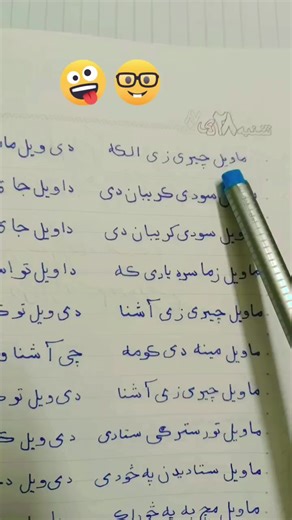 ما ویل چیری زی الکه دی ویل ما
سودی کریبان دی دا ویل جای
ویل سودی کریبان دی دا ویل جای
ما ویل زما سره یاری که دا ویل
ما ویل چیری زی آشنا دی ویل تو
ما ویل مینه دی کومه چی آشنا و
ما ویل چیری زی آشنا دی ویل تو
ما ویل تور سترګی ستا دی دی ویل
ما ویل ستا دیدن په څو دی دی ویل
ما ویل مچ په په څو